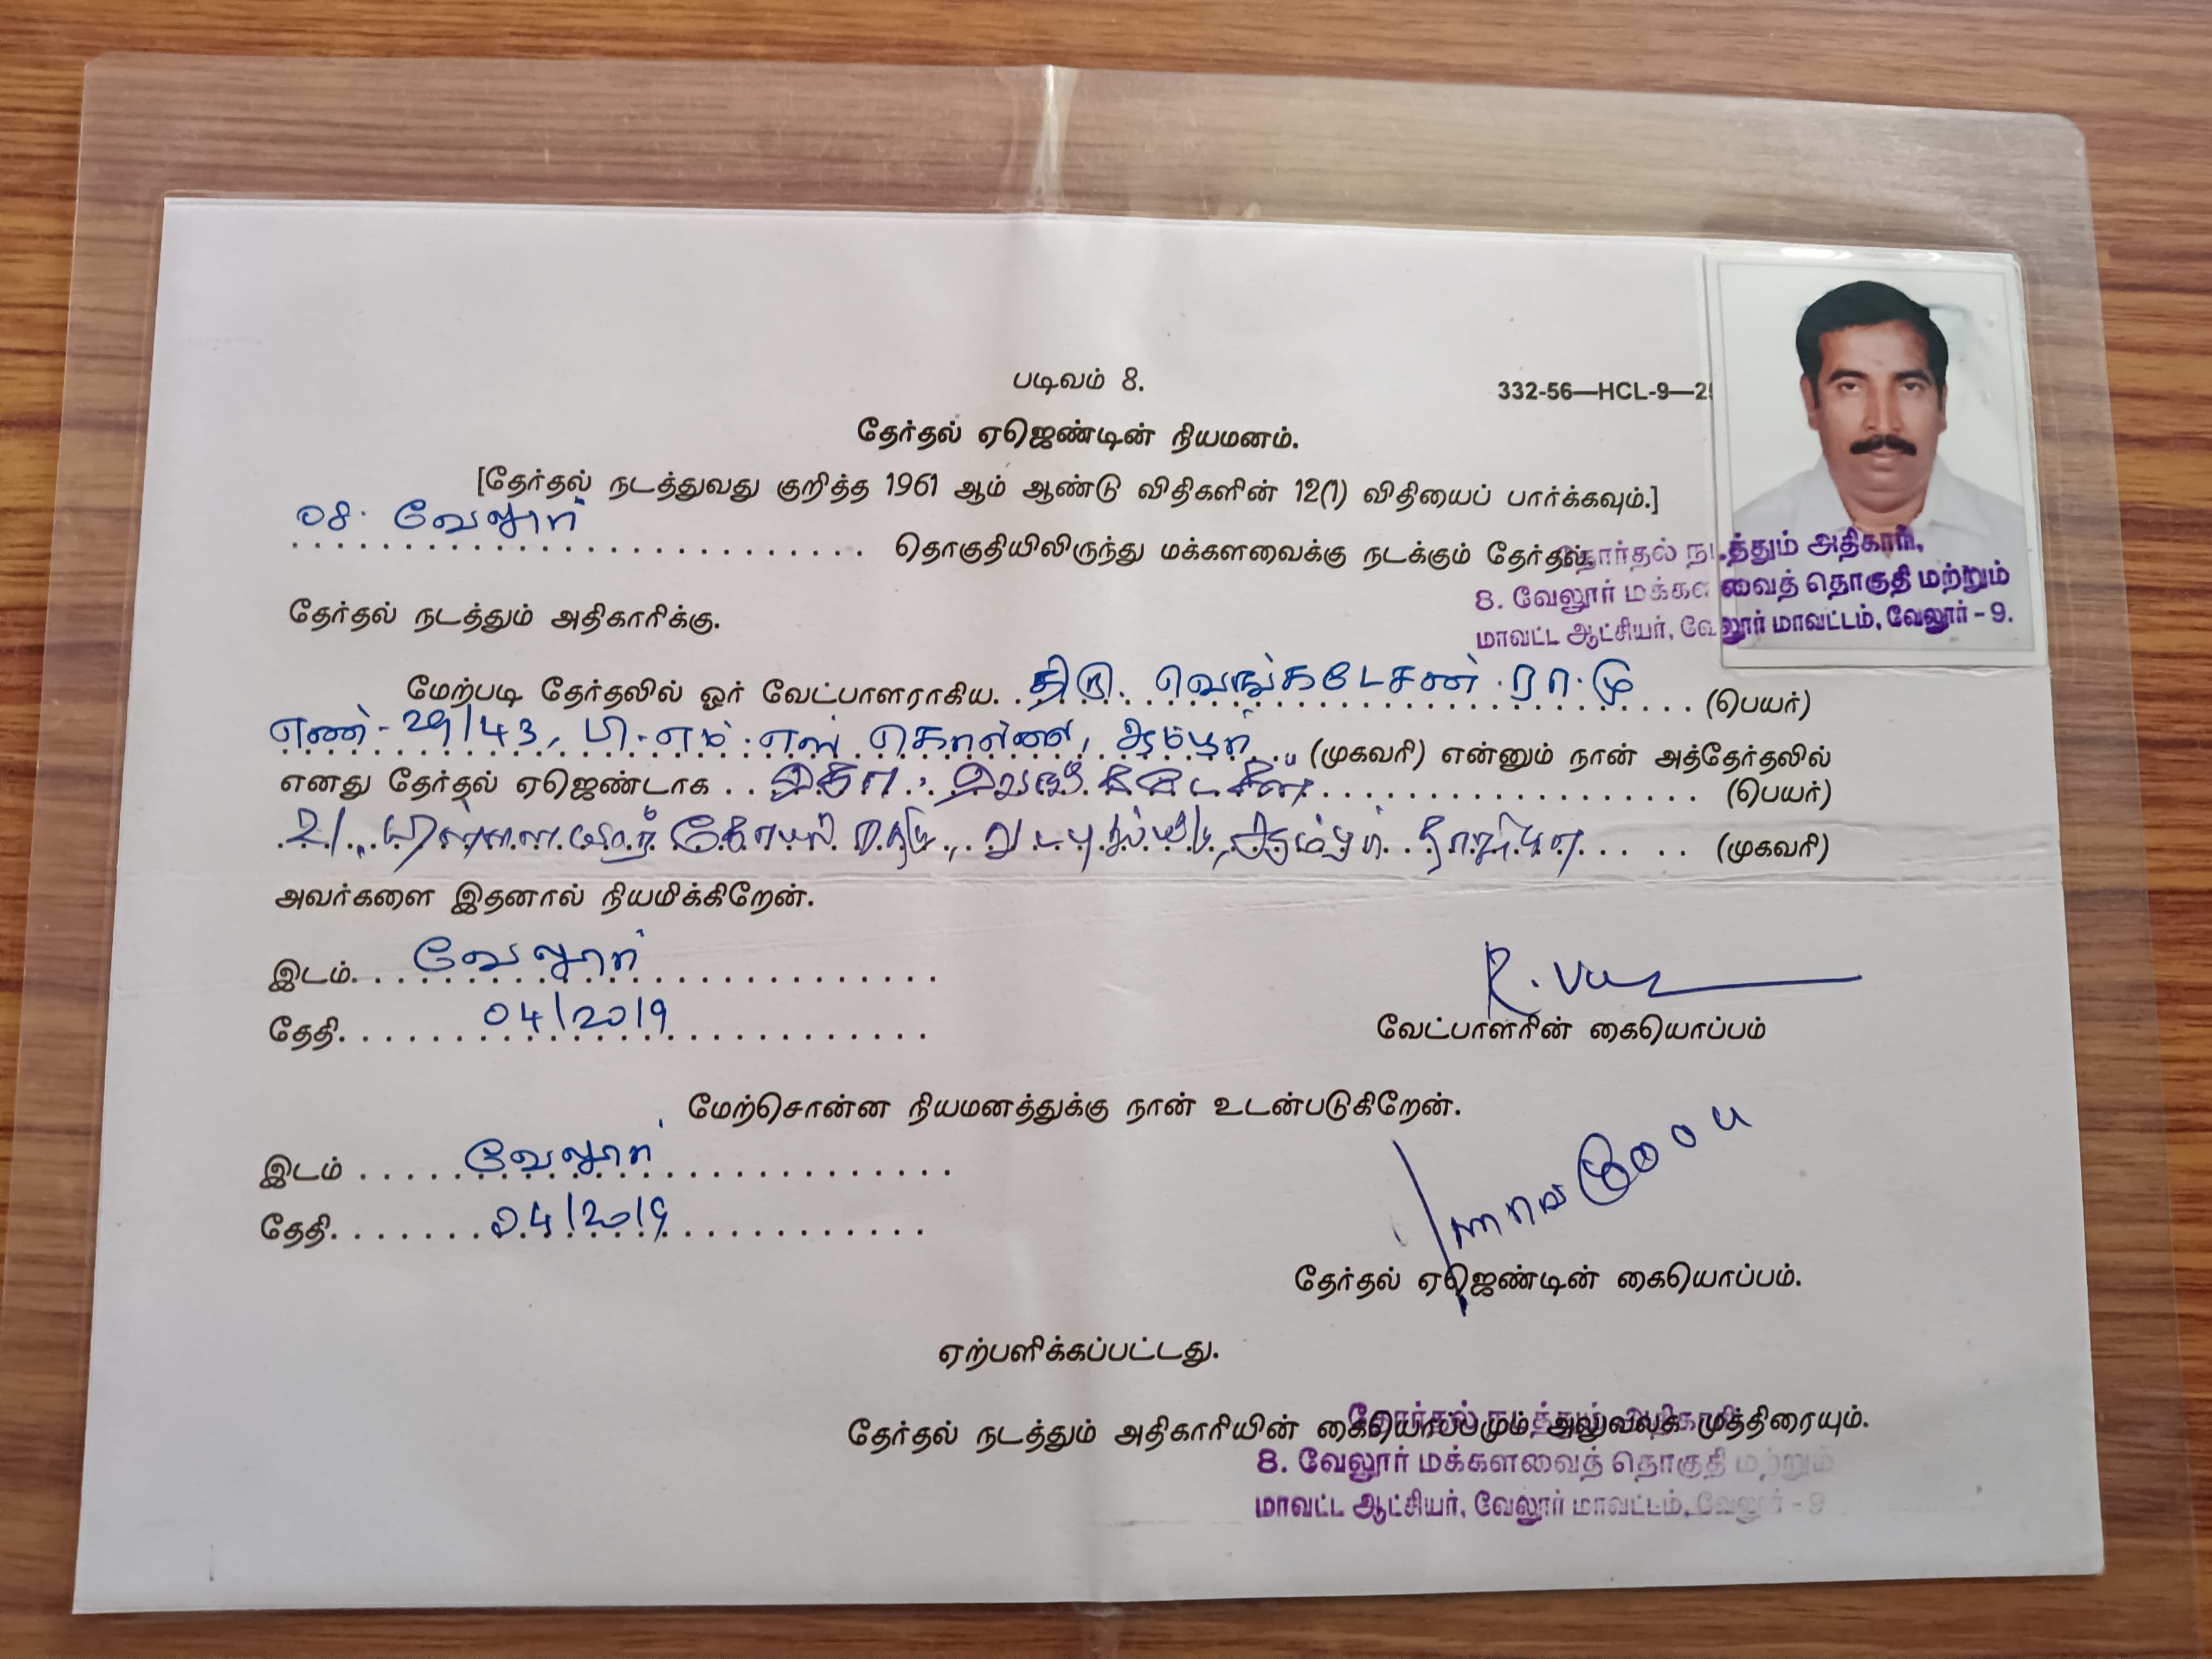 படிவம் 8.
332-56—HCL-9—2
தேர்தல் ஏஜெண்டின் நியமனம்.
[தேர்தல் நடத்துவது குறித்த 1961 ஆம் ஆண்டு விதிகளின் 12(1) விதியைப் பார்க்கவும்.]
08. வேலூர் தொகுதியிலிருந்து மக்களவைக்கு நடக்கும் தேர்தல்.
தேர்தல் நடத்தும் அதிகாரி,
8. வேலூர் மக்களவைத் தொகுதி மற்றும்
மாவட்ட ஆட்சியர், வேலூர் மாவட்டம், வேலூர் - 9.
தேர்தல் நடத்தும் அதிகாரிக்கு.
மேற்படி தேர்தலில் ஓர் வேட்பாளராகிய திரு. வெங்கடேசன் .ரா.மு (பெயர்)
எண்-29/43, பி.எம்.எஸ் கொல்லை, ஆம்பூர் (முகவரி) என்னும் நான் அத்தேர்தலில்
எனது தேர்தல் ஏஜெண்டாக (பெயர்)
கோயில் ஆம்பூர் (முகவரி)
அவர்களை இதனால் நியமிக்கிறேன்.
இடம் வேலூர்
தேதி 04/2019
R. V
வேட்பாளரின் கையொப்பம்
மேற்சொன்ன நியமனத்துக்கு நான் உடன்படுகிறேன்.
இடம் வேலூர்
தேதி 04/2019
தேர்தல் ஏஜெண்டின் கையொப்பம்.
ஏற்பளிக்கப்பட்டது.
தேர்தல் நடத்தும் அதிகாரியின் கையொப்பமும் அலுவலக முத்திரையும்.
தேர்தல் நடத்தும் அதிகாரி
8. வேலூர் மக்களவைத் தொகுதி மற்றும்
மாவட்ட ஆட்சியர், வேலூர் மாவட்டம், வேலூர் - 9